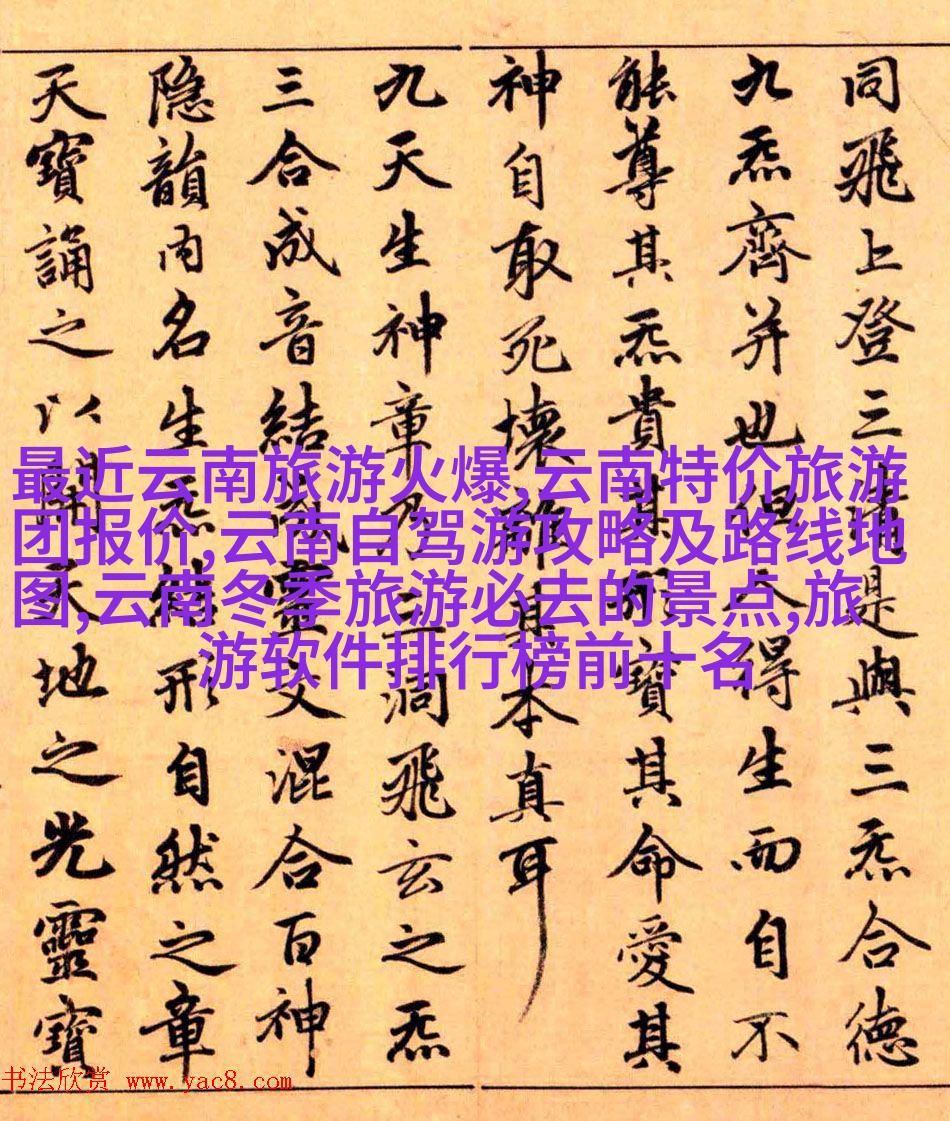 同飛上登三清是與三炁合德
九炁齊并也但人得生而自不
能尊其炁貴其形寶其命愛其
神自取死壞離其本真耳
九天生神章乃三洞飛玄之炁
三合成音結成靈文混合百神
隐韻内名生炁結形自然之章
天寶誦之以開天地之光靈寶
最近云南旅游火爆,云南特价旅游
团报价,云南自驾游攻略及路线地
图,云南冬季旅游必去的景点,旅
游软件排行榜前十名
书法欣赏 www.yac8.com